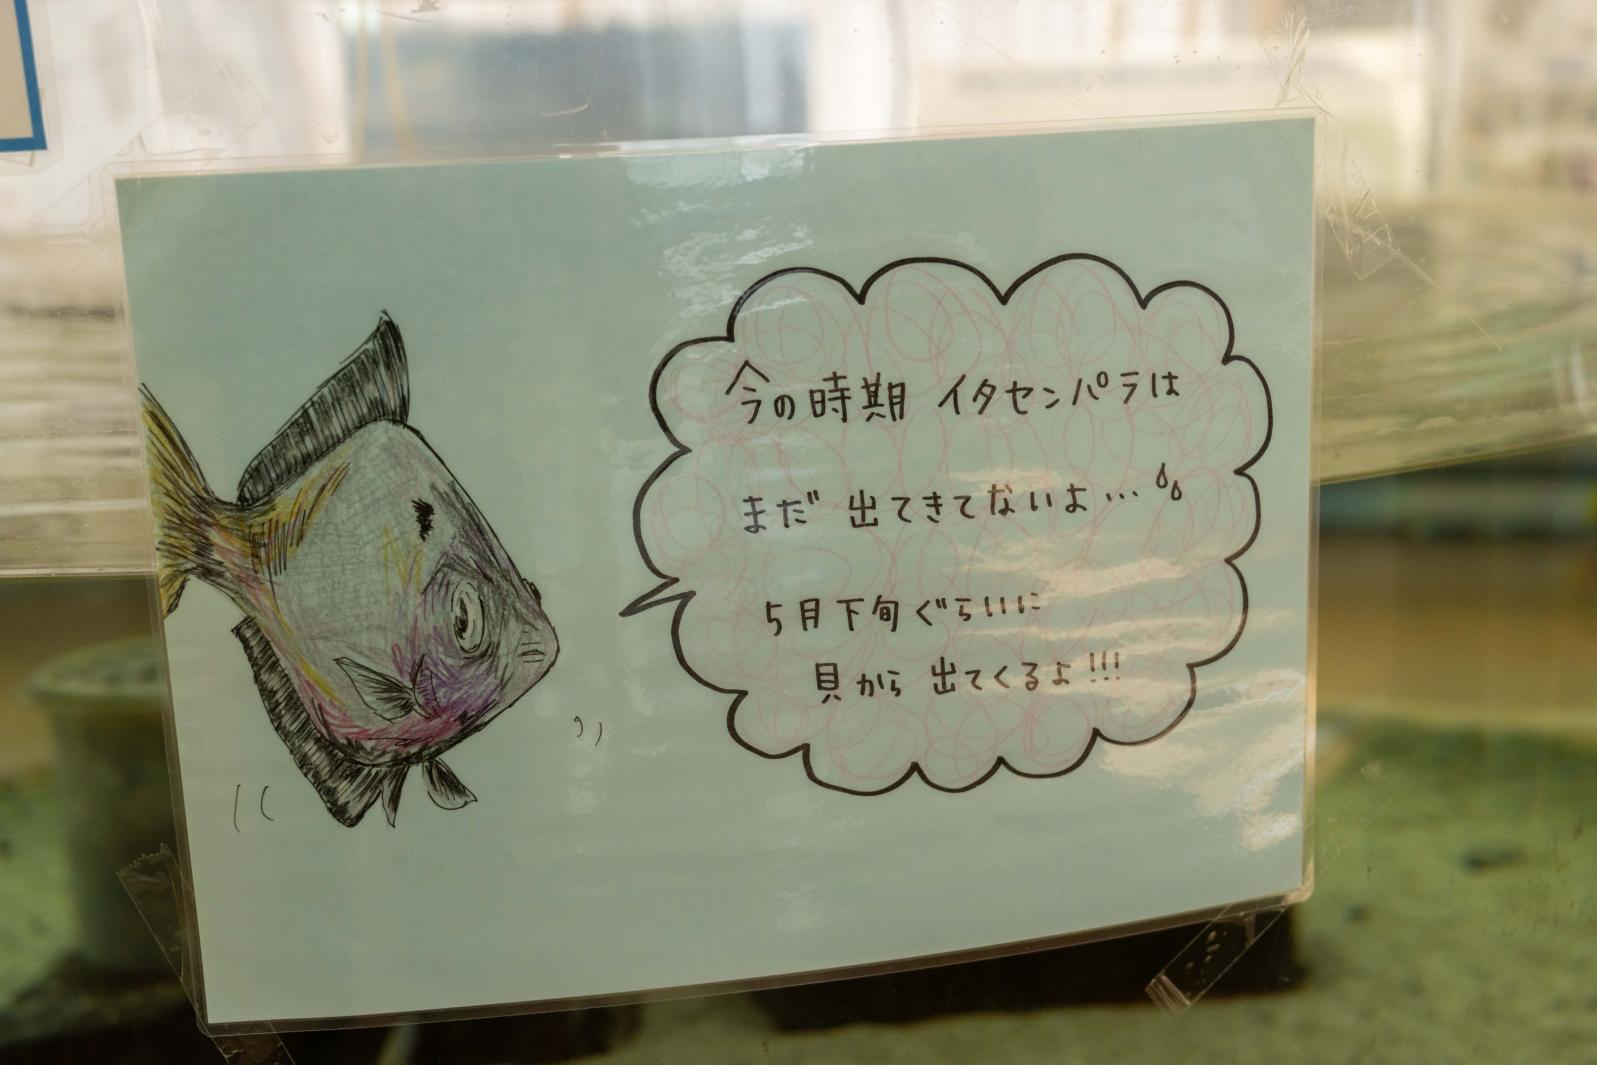 今の時期 イタセンパラは
まだ 出てきてないよ…
5月下旬ぐらいに
貝から 出てくるよ!!!